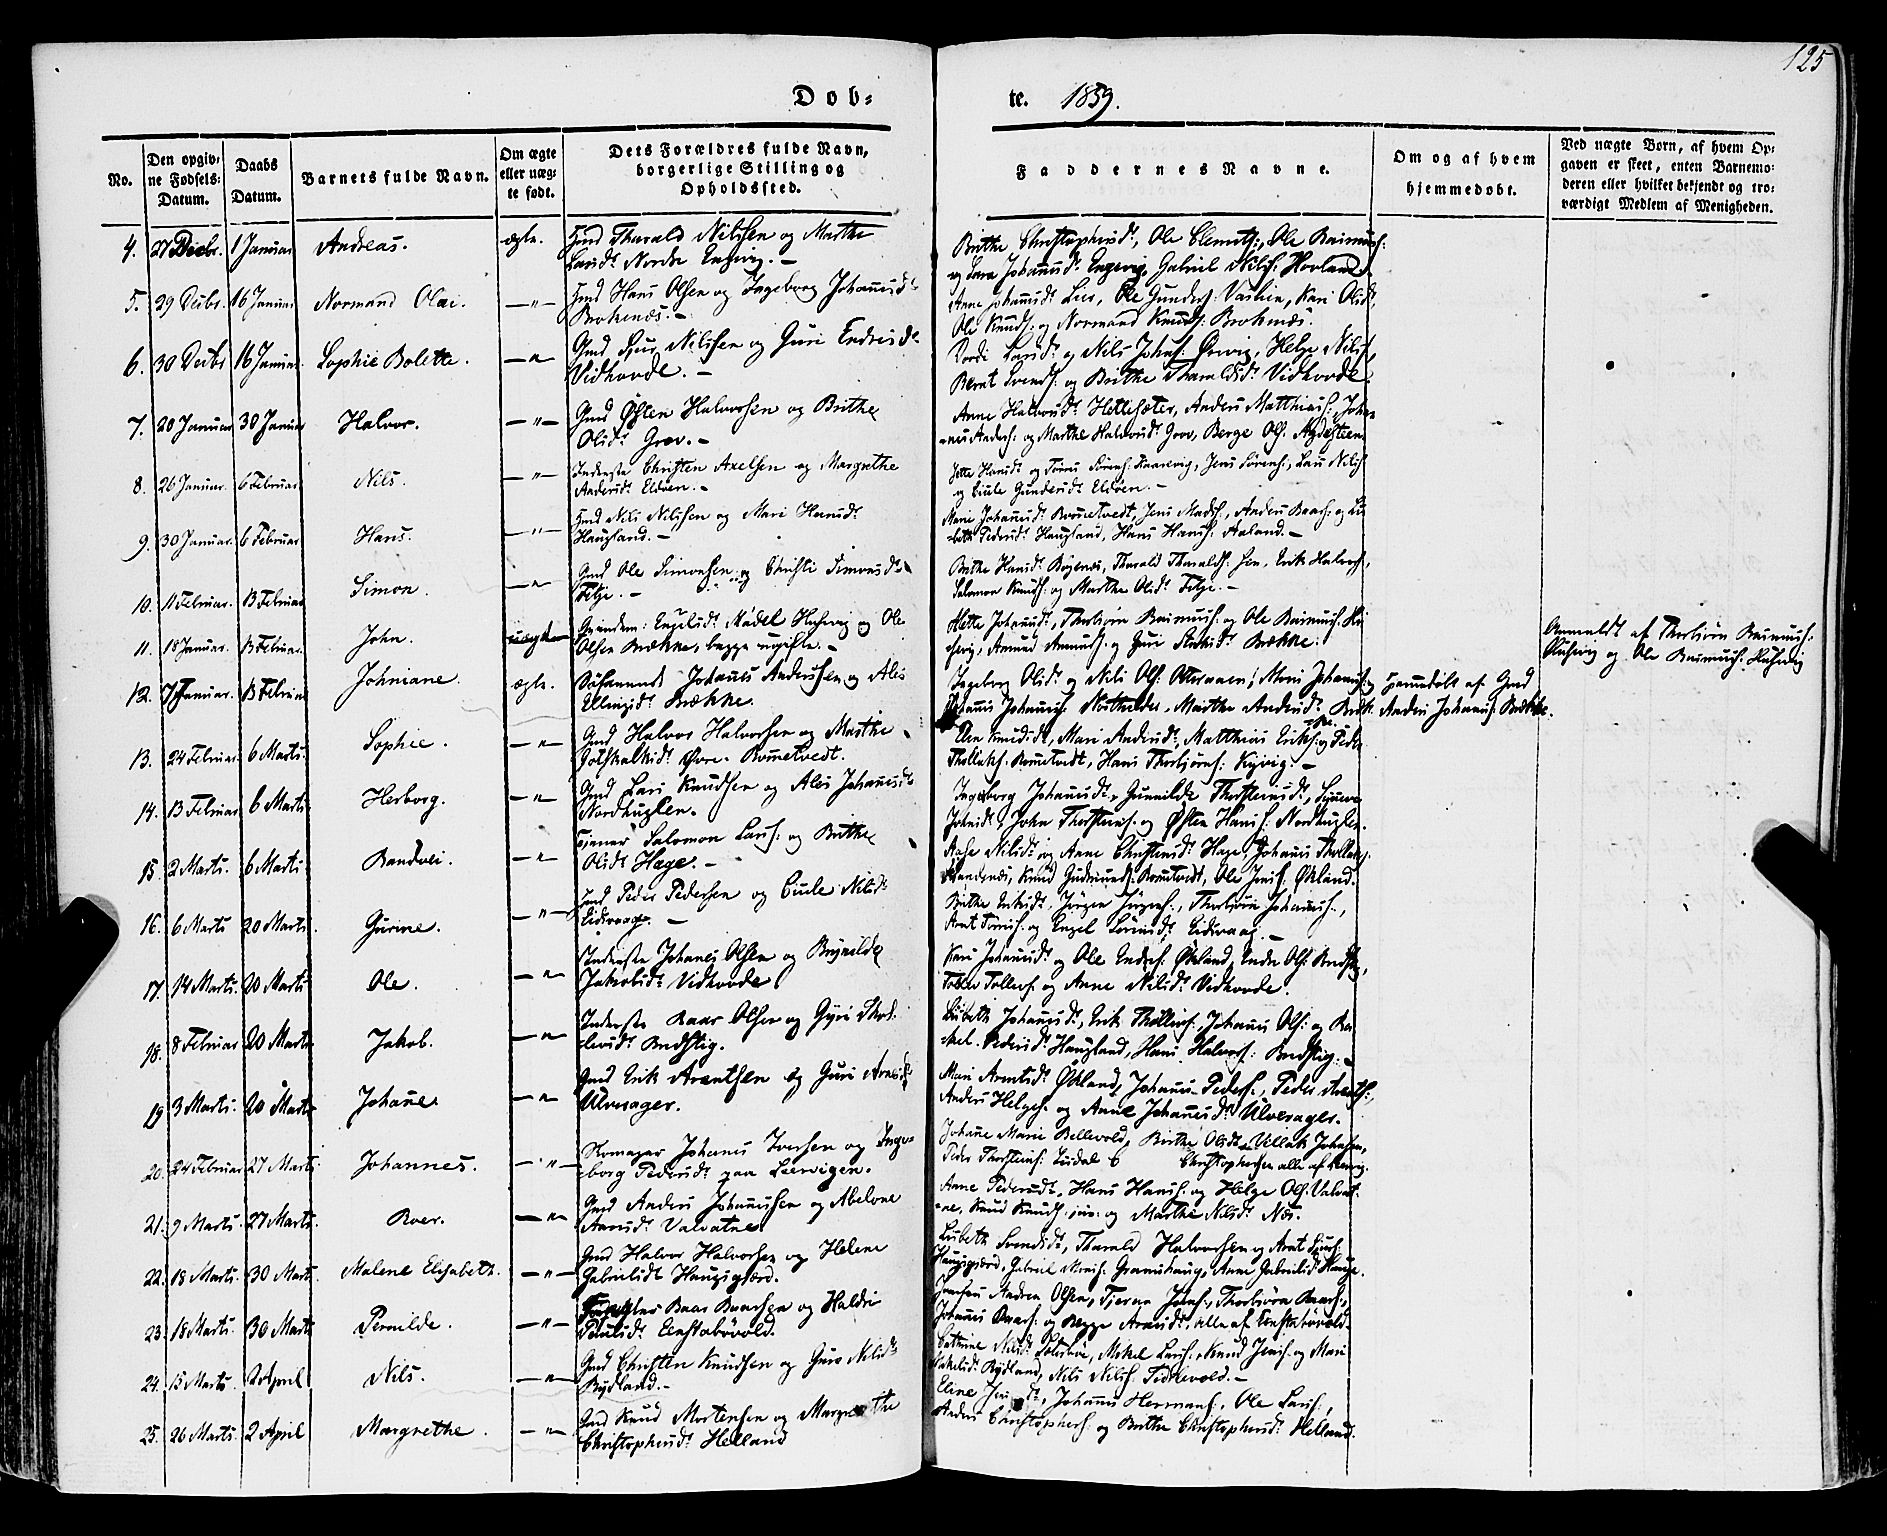 125
Dob-
te. 1859.
No.
Den opgiv-
ne Fødsels-
Datum.
Daabs
Datum.
Barnets fulde Navn.
Om ægte
eller uæg-
te født.
Dets Forældres fulde Navn,
borgerlige Stilling og
Opholdssted.
Faddernes Navne.
Om og af hvem
hjemmedøbt.
Ved uægte Børn, af hvem Op-
gaven er skeet, enten Barnemo-
deren eller hvilket bekjendt og tro-
værdigt Medlem af Menigheden.
4. 27 Decbr. 1 Januar Andreas. ægte. Gmd Tharald Nilssen og Marthe
Larsdr Nordre Engevig. –
Brithe Christophersdr, Ole Clemets:, Ole Rasmuss:
og Sara Johannesdr Engevig, Gabriel Nilss: Hovland.
5. 29 Decbr. 16 Januar Normand Olai. –"– Gmd Hans Olsen og Ingeborg Johannesdr
Brokenæs. –
Anne Johannesdr Lier, Ole Gunders: Vashien, Kari Olsdr,
Ole Knuds: og Normand Knuds: Brokenæs.
6. 30 Decbr 16 Januar. Sophie Bolette. –"– Gmd Sjur Nilssen og Guri Endresdr
Vidhovde. –
Larsdr og Nils Johns: Ørevig, Helge Nilss:,
Bernt Svends: og Brithe Tharaldsdr Vidhovde.
7. 20 Januar 30 Januar Halvor. –"– Gmd Østen Halvorsen og Brithe
Olsdr Grov. –
Anne Halvorsdr Hettesæter, Anders Matthias:, Johan-
nes Anders: og Marthe Halvorsdr Grov, Berge Ols: Agdesteen
8. 26 Januar. 6 Februar. Nils. –"– Inderste Christen Axelsen og Margrethe
Andersdr Eldøen. –
Jette Hansdr og Tørres Sørens: Kaarevig, Jens Sørens:, Lars Nilss:
og Cicile Gundersdr Eldøen. –
9. 30 Januar. 6 Februar Hans. –"– Gmd Nils Nilssen og Mari Hansdr
Haugland. –
Marie Johannesdr Rometvedt, Jens Mads:, Anders Baars: og Li-
sbeth Pedersdr Haugland, Hans Hans: Aaland. –
10. 11 Februar. 13 Februar Simon. –"– Gmd Ole Simonsen og Christi Simonsdr
Titje. –
Brithe Hansdr Røgenæs, Tharald Tharalds: Erik Halvors:,
Salomon Knuds: og Marthe Olsdr Titje. –
11. 18 Januar. 13 Februar. John. uægte Engelsdr Nådel Hufevig og Ole
Olsen Brække, begge ugifte. –
Mette Johannesdr, Thorbjørn Rasmuss: og Ole Rasmuss: Hu-
fevig, Amund Amunds: og Guri Brække.
Anmeldt af Thorbjørn Rasmuss:
Hufevig og Ole Rasmuss: Hufevig
12. 7 Januar. 13 Februar Johniane. ægte. Huusmand Johannes Anderssen og Ales
Brække.
Ingeborg Olsdr og Nils Ols: Mari Johanness: og
Johannes Johanness: Marthe Andersdr Bræk:
Hjemmedøbt af Gmd
Anders Johanness: Brække.
13. 24 Februar 6 Marts. Sophie. –"– Gmd Halvor Halvorsen og Marthe
Gotskalksdr Øvre-Rometvedt.
Elen Knudsdr, Mari Andersdr, Matthias Eriks: og Peder
Thollaks: Rometvedt, Hans Thorbjørns: Kyvig. –
14. 13 Februar 6 Marts Herborg. –"– Gmd Lars Knudsen og Ales Johannesdr
Nordhuglen.
Ingeborg Johannesdr, Gunnilde Thorsteinsdr, Synneve
Johnsdr, John Thorsteins: og Østen Hans: Nordhuglen.
15. 2 Marts. 6 Marts Randvei. –"– Tjener Salomon Lars: og Brithe
Olsdr Hage. –
Aase Nilsdr og Anne Christensdr Hage, Johannes Thollaks:
Knud Rometvedt, Ole Jens: Økland.
16. 6 Marts 20 Marts. Gurine. –"– Gmd Peder Pedersen og Cicile Nilsdr
Eidsvaag. –
Brithe Eriksdr, Jørgen Jørgens:, Thorbjørn Johanness:,
og Engel Eidsvaag. –
17. 14 Marts. 20 Marts Ole. –"– Inderste Johannes Olsen og Brynilda
Jakobsdr Vidhovde
Kari Johannesdr og Ole Endres: Økland, Endre Ols: Budstig,
Tollev Tollevs: og Anne Nilsdr Vidhovde.
18. 8 Februar 20 Marts Jakob. –"– Inderste Baar Olsen og Guri
Budstig.
Lisbeth Johannesdr, Erik Johannes Ols: og Ra-
chel Pedersdr Haugland, Hans Halvors: Budstig. –
19 3 Marts. 20 Marts Johanne. –"– Gmd Erik Arentsen og Guri
Ulvesager.
Mari Arentsdr Økland, Johannes Peders:, Peder Arents:,
Anders Helges: og Anne Johannesdr Ulvesager.
20. 24 Februar 27 Marts. Johannes. –"– Skomager Johannes Iversen og Inge-
borg Pedersdr paa Leervigen.
Johanne Marie Bellevold, Birthe Olsdr, Villak Johnsen,
Peder Thorsteins: Lusdal & Christophersen alle af Leervig.
21. 9 Marts. 27 Marts. Roer. –"– Gmd Anders Johannessen og Abelone
Valvatne.
Anne Pedersdr, Hans Hans: og Helge Ols: Valvat-
ne, Knud Knuds: jun: og Marthe Nilsdr Næs.
22. 18 Marts. 30 Marts. Malene Elisabeth. –"– Gmd Halvor Halvorsen og Helene
Gabrielsdr Haugsgjerd.
Lisbeth Svendsdr, Tharald Halvorsen og
Haugsgjerd, Gabriel Gramshaug, Anne Gabrielsdr Hauge.
23. 18 Marts. 30 Marts Pernilde. –"– Baar Baarsen og Haldri
Poulsdr Eenstabøvold.
Andrea Olsen, Johns:, Thorbjørn Baars:,
Johannes Baars: og alle af Eenstabøvold.
24. 15 Marts. 2 April Nils. –"– Gmd Christen Knudsen og Guro Nilsdr
Rydland. –
Cathrine Nilsdr Mikel Lars:, Knud Jens: og Mari
Rydland, Nils Nilss: Tittlevold. –
25. 26 Marts. 2 April Margrethe. –"– Gmd Knud Mortensen og Margrethe
Christophersdr Helland
Eline Johannes Hermans:, Ole Lars:,
Anders Christophers: og Brithe Christophersdr Helland.